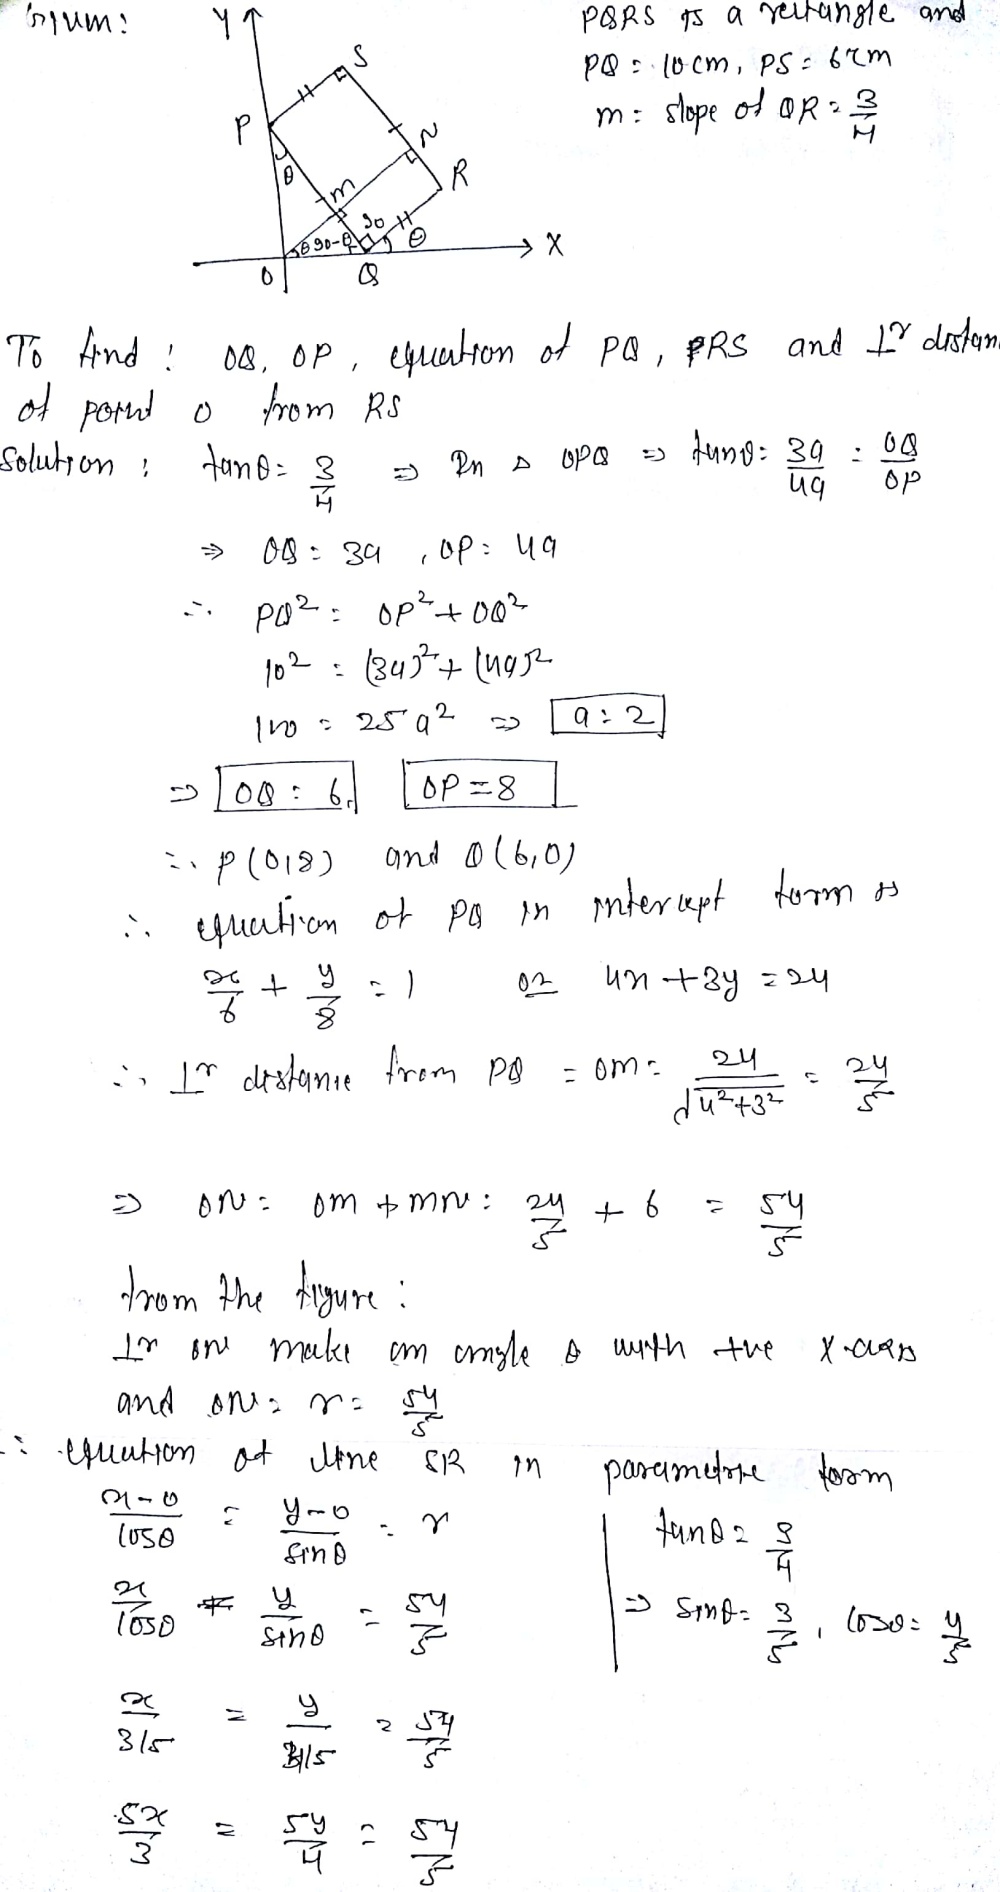 Given:
PQRS is a rectangle and
PQ = 10cm, PS = 6cm
m = slope of QR = 3/4
Y
S
P
N
θ
m
R
90
θ 90-θ
θ
X
O
Q
To find : OQ, OP, equation of PQ, RS and ⊥r distan
of point O from RS
Solution : tanθ = 3/4 ⇒ In Δ OPQ ⇒ tanθ = 3a/4a = OQ/OP
⇒ OQ = 3a , OP = 4a
∴ PQ² = OP² + OQ²
10² = (3a)² + (4a)²
100 = 25a² ⇒ a = 2
⇒ OQ = 6, OP = 8
∴ P(0,8) and Q(6,0)
∴ equation of PQ in intercept form is
x/6 + y/8 = 1 or 4x + 3y = 24
∴ ⊥r distance from PQ = OM = 24/√4²+3² = 24/5
⇒ ON = OM + MN = 24/5 + 6 = 54/5
from the figure :
⊥r ON make an angle θ with +ve X-axis
and ON = r = 54/5
∴ equation of line SR in parametric form
x-0/cosθ = y-0/sinθ = r
tanθ = 3/4
x/cosθ = y/sinθ = 54/5
⇒ sinθ = 3/5, cosθ = 4/5
x/3/5 = y/4/5 = 54/5
5x/3 = 5y/4 = 54/5